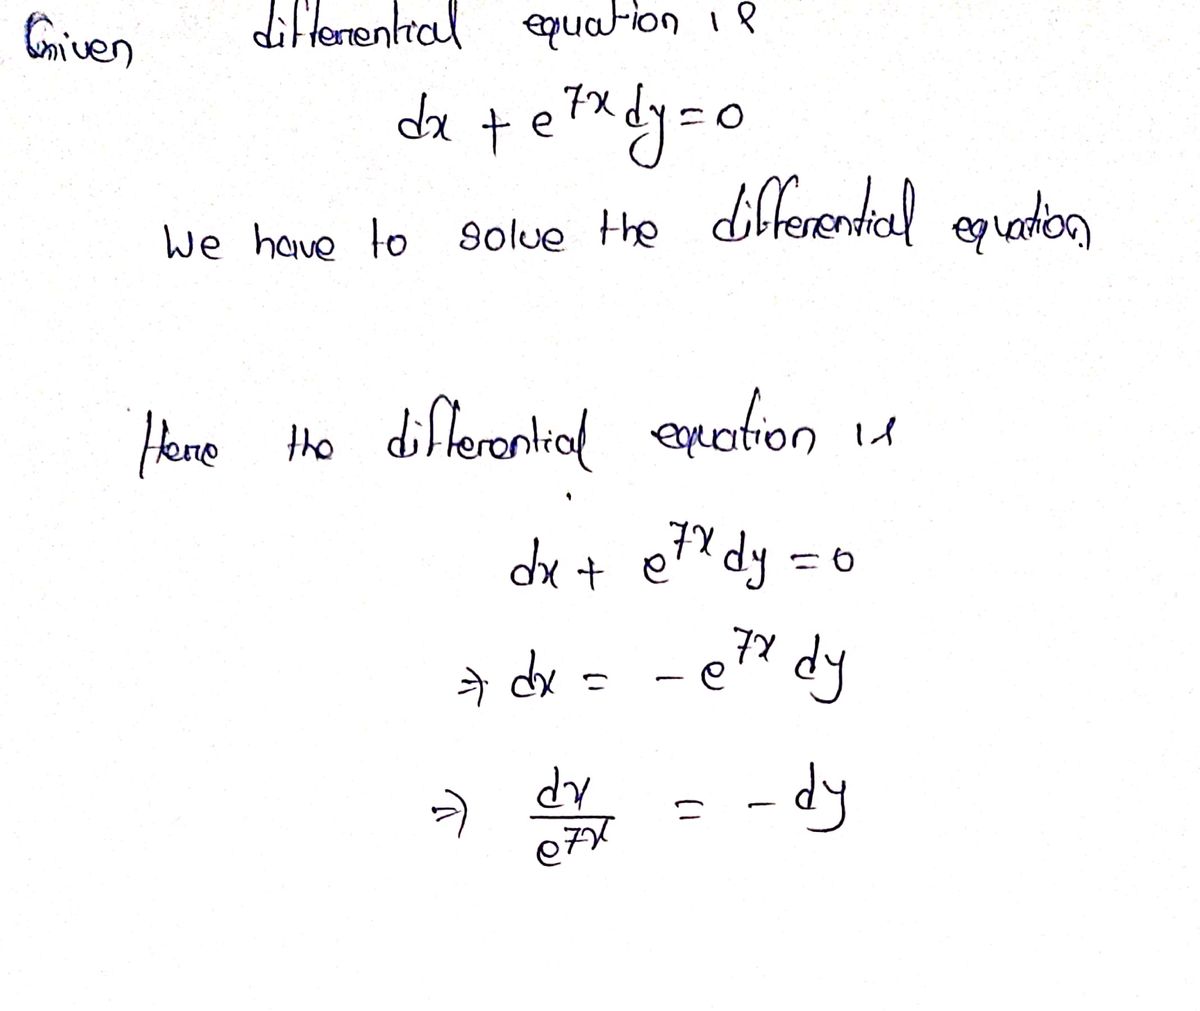 Given differential equation is
dx + e^{7x} dy = 0
We have to solve the differential equation
Here the differential equation is
dx + e^{7x} dy = 0
⇒ dx = - e^{7x} dy
⇒ dx/e^{7x} = - dy